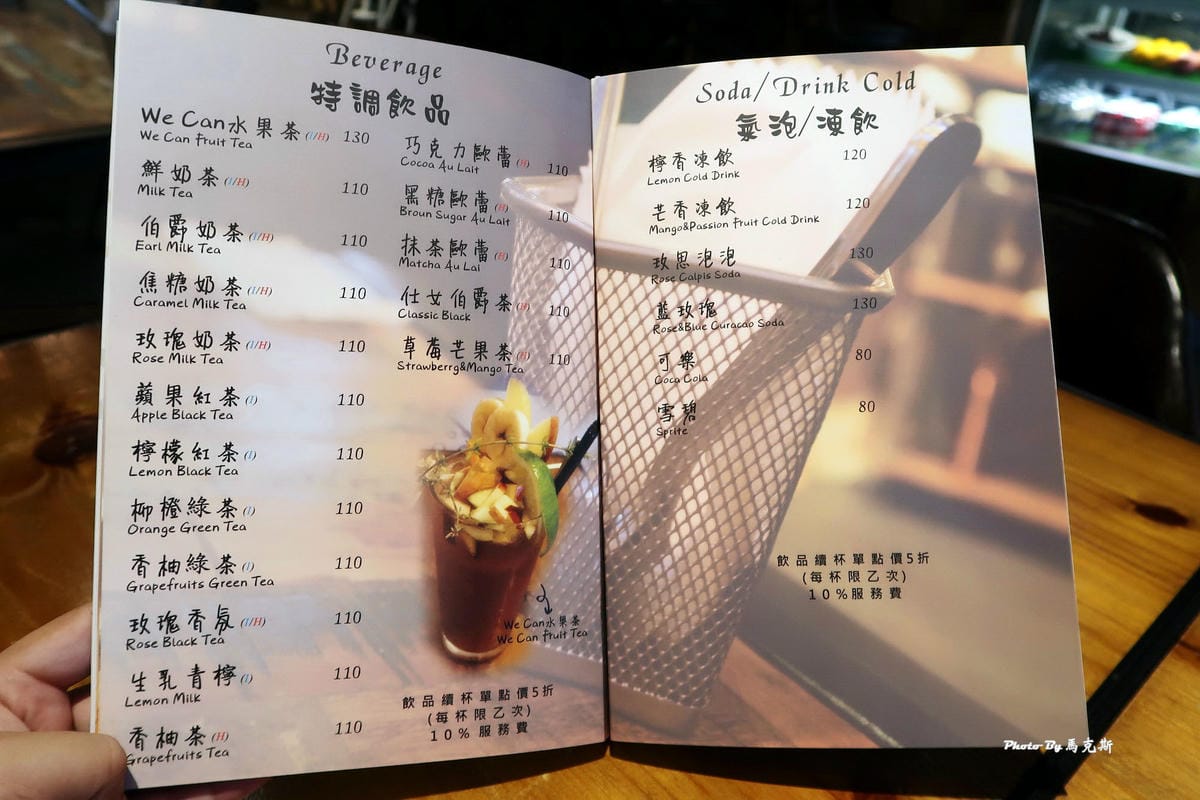 Beverage
特調飲品
We Can水果茶(I/H) 130
We Can Fruit Tea
鮮奶茶(I/H) 110
Milk Tea
伯爵奶茶(I/H) 110
Earl Milk Tea
焦糖奶茶(I/H) 110
Caramel Milk Tea
玫瑰奶茶(I/H) 110
Rose Milk Tea
蘋果紅茶(I) 110
Apple Black Tea
檸檬紅茶(I) 110
Lemon Black Tea
柳橙綠茶(I) 110
Orange Green Tea
香柚綠茶(I) 110
Grapefruits Green Tea
玫瑰香氛(I/H) 110
Rose Black Tea
生乳青檸(I) 110
Lemon Milk
香柚茶(H) 110
Grapefruits Tea
巧克力歐蕾(H) 110
Cocoa Au Lait
黑糖歐蕾(H) 110
Broun Sugar Au Lait
抹茶歐蕾(H) 110
Matcha Au Lai
仕女伯爵茶(H) 110
Classic Black
草莓芒果茶(H) 110
Strawberrg&Mango Tea
We Can水果茶
We Can Fruit Tea
飲品續杯單點價5折
(每杯限乙次)
10%服務費
Soda/Drink Cold
氣泡/凍飲
檸香凍飲 120
Lemon Cold Drink
芒香凍飲 120
Mango&Passion Fruit Cold Drink
玫思泡泡 130
Rose Calpis Soda
藍玫瑰 130
Rose&Blue Curacao Soda
可樂 80
Coca Cola
雪碧 80
Sprite
飲品續杯單點價5折
(每杯限乙次)
10%服務費
Photo By 馬克斯